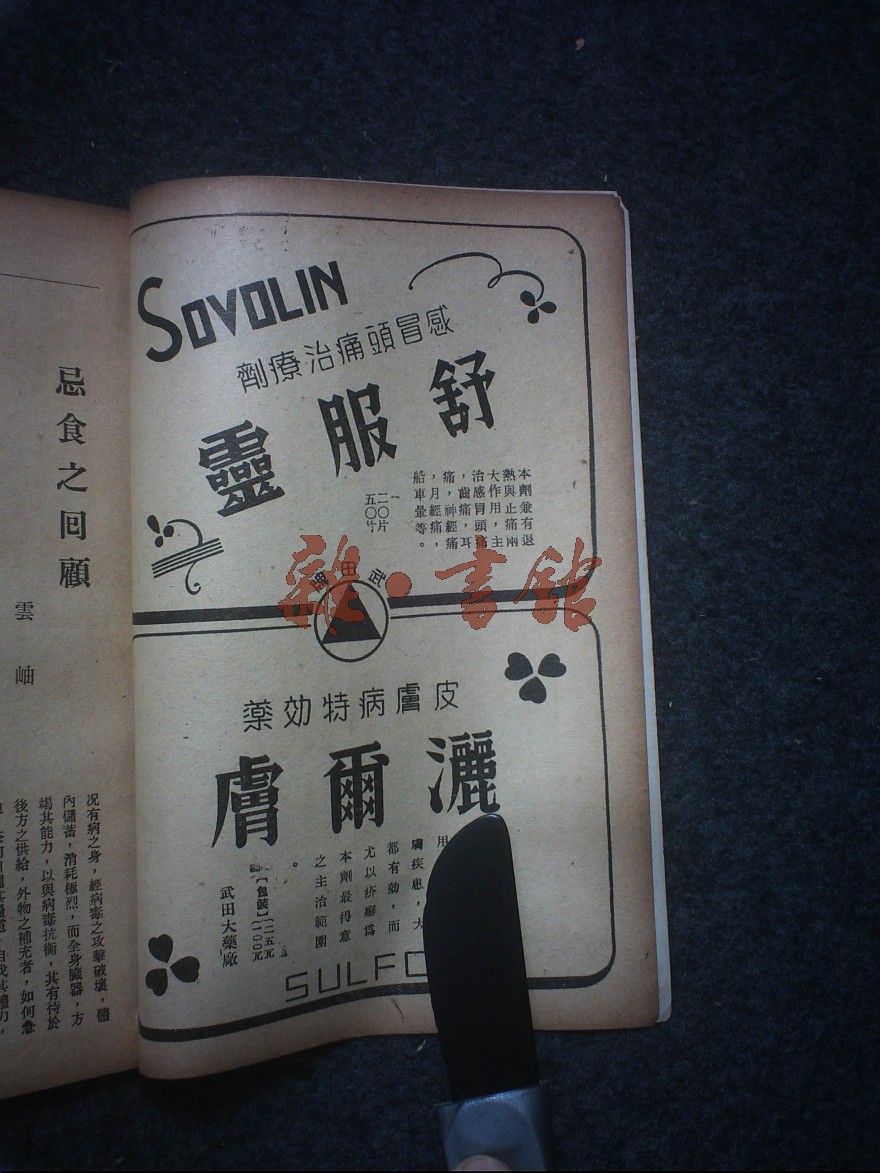 SOVOLIN
感冒頭痛治療劑
舒服靈
本劑兼有退
熱與止痛兩
大作用，主
治感冒頭痛
，齒痛，耳
痛，神經痛
，月經痛，
船車暈等。
二〇片
五〇〇片
武田
雜·書館
皮膚病特効藥
灑爾膚
用
膚疾患，大
都有効，而
尤以疥癬爲
本劑最得意
之主治範圍
。
【包裝】
二五瓦
一〇〇瓦
武田大藥廠
SULFO
忌食之回顧
雲岫
况有病之身，經病毒之攻擊破壞，體
內儲蓄，消耗極烈，而全身臟器，方
竭其能力，以與病毒抗衡，其有待於
後方之供給，外物之補充者，如何急